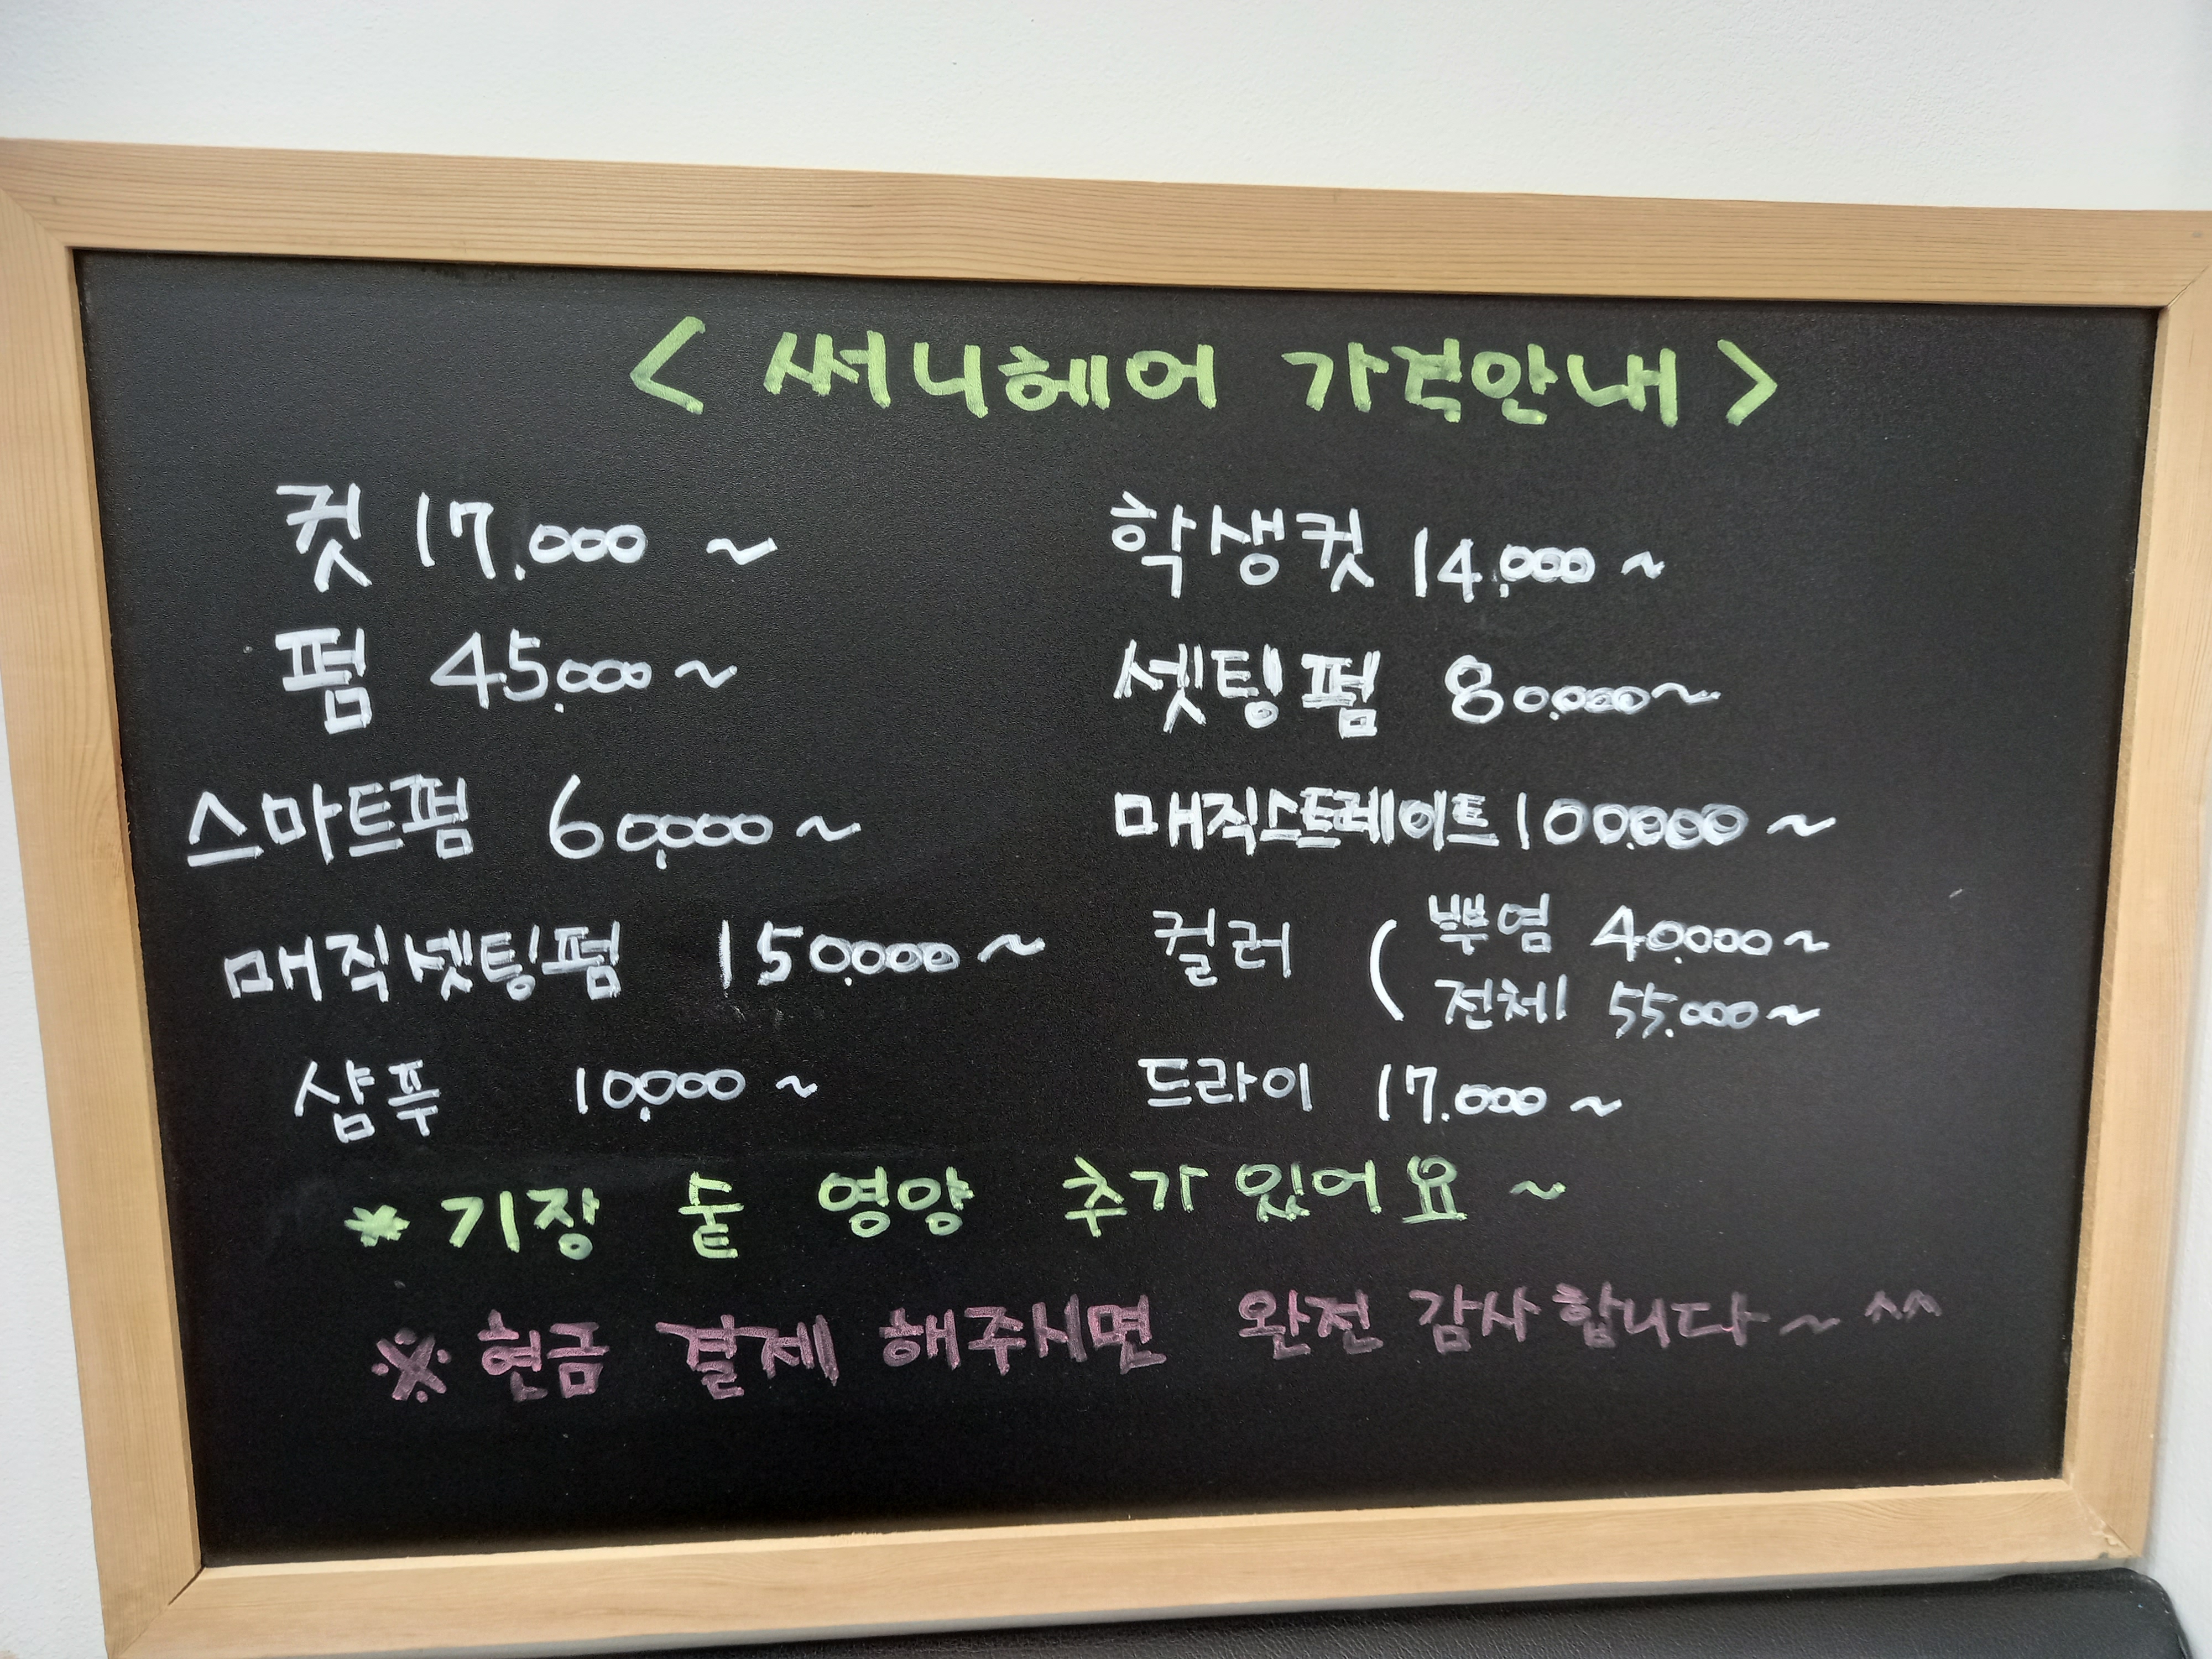 < 써니헤어 가격안내 >
컷 17.000 ~
학생컷 14.000 ~
펌 45.000 ~
셋팅펌 80.000 ~
스마트펌 60.000 ~
매직스트레이트 100.000 ~
매직셋팅펌 150.000 ~
컬러 ( 뿌염 40.000 ~
전체 55.000 ~
샴푸 10.000 ~
드라이 17.000 ~
* 기장 숱 영양 추가 있어요 ~
※ 현금 결제 해주시면 완전 감사합니다~ ^^